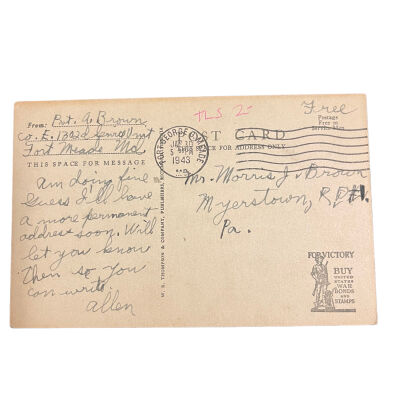 TLS 2-
Free
Postage
Free to
Service Men
From: Pvt. A. Brown
Co. E. 1322d
Fort Meade Md.
THIS SPACE FOR MESSAGE
am doing fine
Guess I'll have
a more permanent
address soon. Will
let you know
then so you
can write.
Allen
W. S. THOMPSON & COMPANY, PUBLISHERS,
FORT GEORGE G MEADE
5 PM
1943
MD.
POST CARD
SPACE FOR ADDRESS ONLY
Mr. Morris J. Brown
Myerstown, R.D#1.
Pa.
FOR VICTORY
BUY
UNITED
STATES
WAR
BONDS
AND
STAMPS